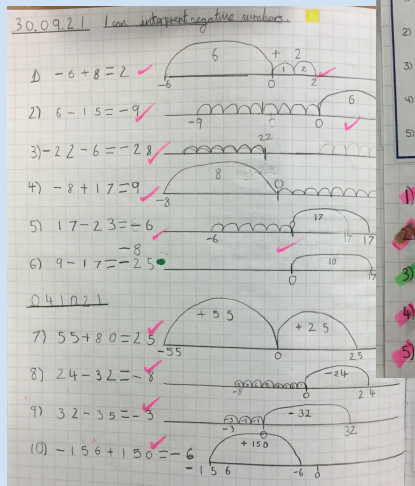 30.09.21 I can interpret negative numbers.
6 + 2
1) -6+8=2 1 2
-6 0 2
2) 6-15=-9 6
-9 0
3) -22-6=-28 22
4) -8+17=9 8 0
-8
5) 17-23=-6 17
-6 0 17 17
-8
6) 9-17=-25 10
0 17
041021
7) 55+80=25 +55 +25
-55 0 25
8) 24-32=-8 -24
-8 0 24
9) 32-35=-3 -32
-3 0 32
10) -156+150=-6 +150
-156 -6 0
2)
3)
4)
5)
1)
2)
3)
4)
5)